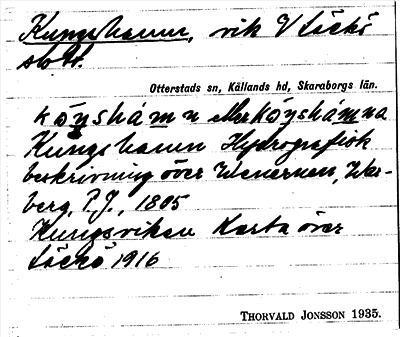 Kungshamn, vik V Läckö
slott.
Otterstads sn, Kållands hd, Skaraborgs län.
Kungshamn Hydrografisk
beskrivning över Wenernen, War-
berg, P.J., 1805
Kungsviken Karta över
Läckö 1916
THORVALD JONSSON 1935.